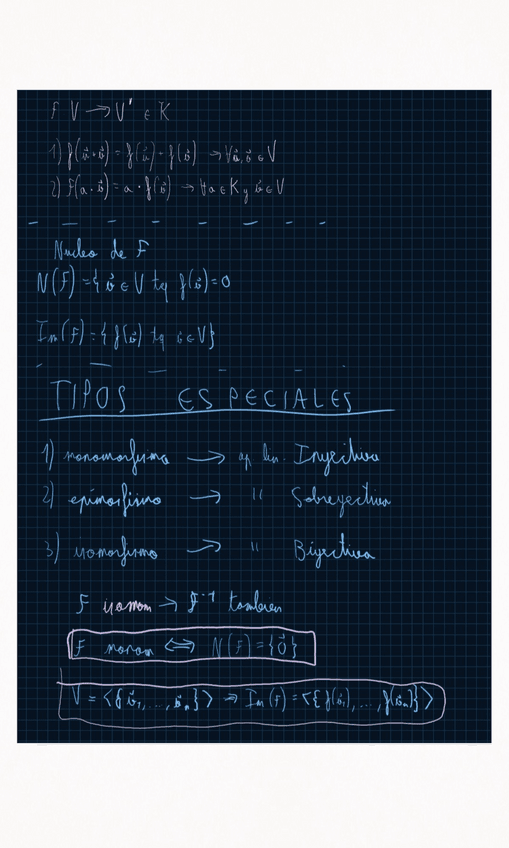 F V → V' ∈ K
1) f(ū+v̄) = f(ū) + f(v̄) → ∀ū,v̄ ∈ V
2) F(a·v̄) = a · f(v̄) → ∀a ∈ K y v̄ ∈ V
Nucleo de F
N(F) = { v̄ ∈ V tq f(v̄) = 0
Im(F) = { f(v̄) tq v̄ ∈ V}
TIPOS ESPECIALES
1) monomorfismo → ap lin. Inyectiva
2) epimorfismo → " Sobreyectiva
3) isomorfismo → " Biyectiva
F isomom → f⁻¹ tambien
F monom ⇔ N(F) = {0⃗}
V = <{v̄₁, ..., v̄ₙ}> ⇒ Im(F) = <{f(v̄₁), ..., f(v̄ₙ)}>